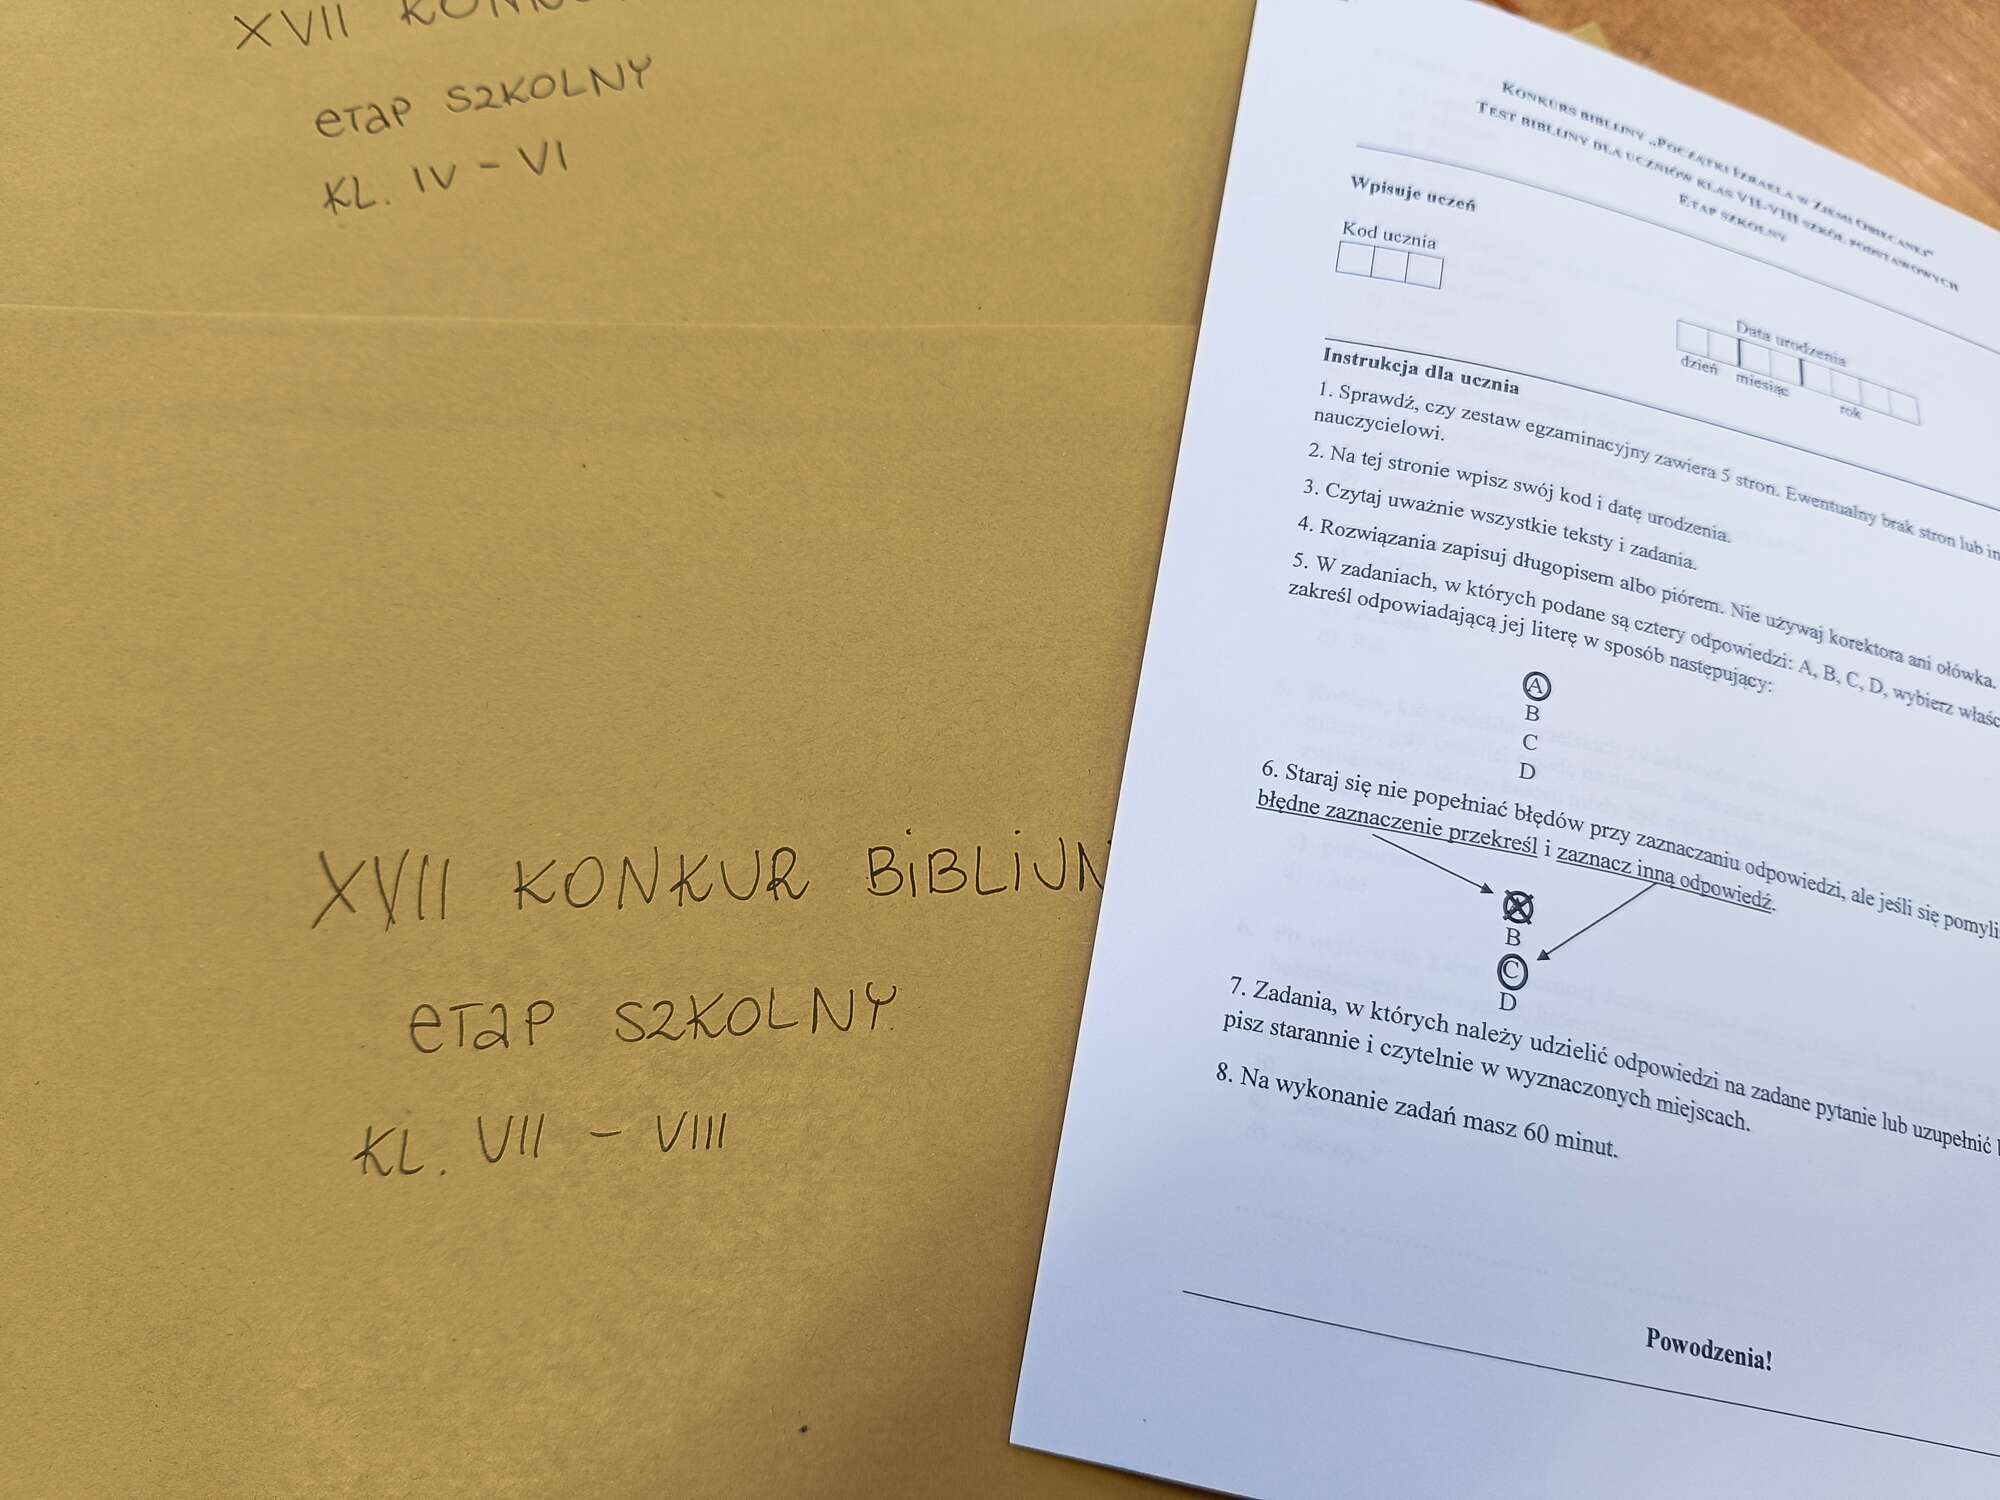 XVII
eTaP SZKOLNY
KL. IV - VI
XVII KONKUR BiBLiJN
eTaP SZKOLNY
KL. VII - VIII
KONKURS BIBLIJNY „POCZĄTKI IZRAELA W ZIEMI OBIECANEJ”
TEST BIBLIJNY DLA UCZNIÓW KLAS VII-VIII SZKÓŁ PODSTAWOWYCH
ETAP SZKOLNY
Wpisuje uczeń
Kod ucznia
Data urodzenia
dzień miesiąc rok
Instrukcja dla ucznia
1. Sprawdź, czy zestaw egzaminacyjny zawiera 5 stron. Ewentualny brak stron lub in
nauczycielowi.
2. Na tej stronie wpisz swój kod i datę urodzenia.
3. Czytaj uważnie wszystkie teksty i zadania.
4. Rozwiązania zapisuj długopisem albo piórem. Nie używaj korektora ani ołówka.
5. W zadaniach, w których podane są cztery odpowiedzi: A, B, C, D, wybierz właśc
zakreśl odpowiadającą jej literę w sposób następujący:
A
B
C
D
6. Staraj się nie popełniać błędów przy zaznaczaniu odpowiedzi, ale jeśli się pomyli
błędne zaznaczenie przekreśl i zaznacz inną odpowiedź.
A
B
C
D
7. Zadania, w których należy udzielić odpowiedzi na zadane pytanie lub uzupełnić
pisz starannie i czytelnie w wyznaczonych miejscach.
8. Na wykonanie zadań masz 60 minut.
Powodzenia!